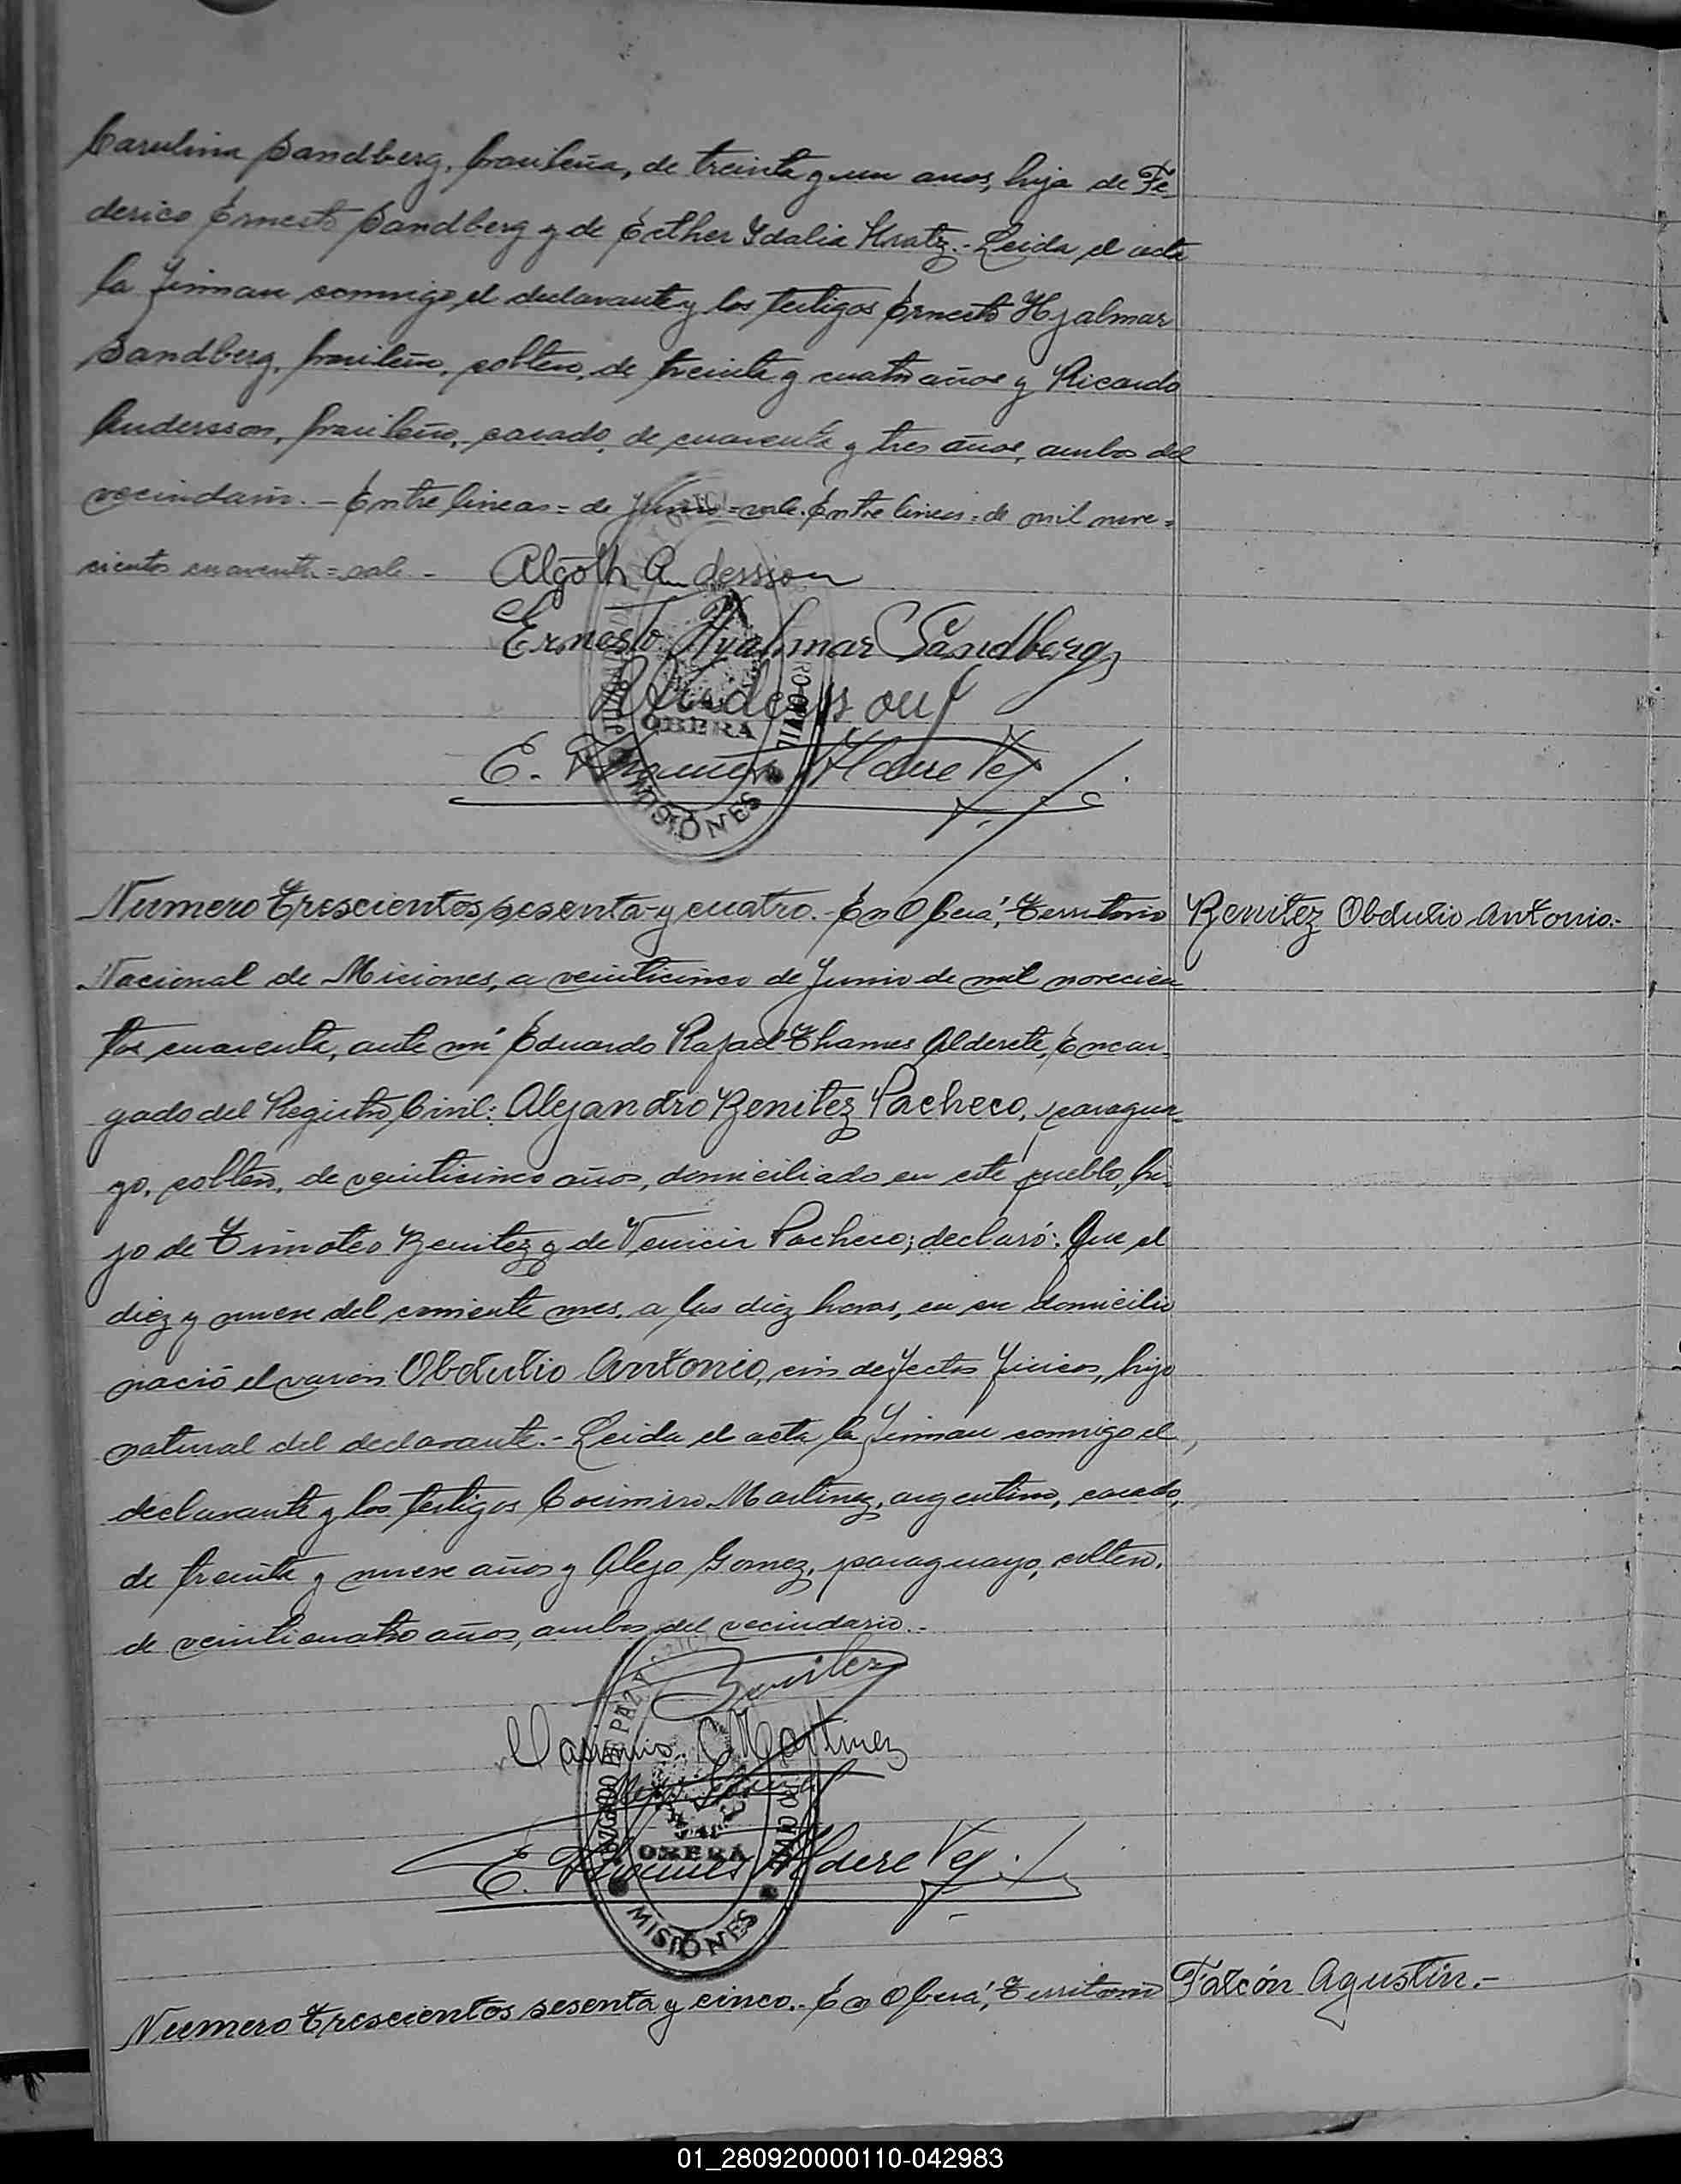 Carulina Sandberg, brasileña, de treinta y un años, hija de Fe-
derico Ernesto Sandberg y de Esther Ydalia Kratz.- Leida el acta
la firman conmigo, el declarante y los testigos Ernesto Hjalmar
Sandberg, brasileño, soltero, de treinta y cuatro años y Ricardo
Andersson, brasileño, casado, de cuarenta y tres años, ambos del
vecindario.- Entre lineas = de Junio = vale. Entre lineas = de mil nove=
cientos cuarenta = vale -
Algoth Andersson
Ernesto Hyalmar Sandberg
RAnderssouf
E. Thames Alderete
OBERA
MISIONES
Numero Trescientos sesenta y cuatro.- En Oberá, Territorio
Benitez Obdulio Antonio.-
Nacional de Miciones, a veinticinco de Junio de mil novecien
tos cuarenta, ante mí Eduardo Rafael Thames Alderete, Encar-
gado del Registro Civil: Alejandro Benitez Pacheco, paragua-
yo, soltero, de veinticinco años, domiciliado en este pueblo, hi-
jo de Timoteo Benitez y de Pacheco; declaró: Que el
diez y nueve del corriente mes, a las diez horas, en su domicilio
nació el varon Obdulio Antonio, sin defectos fisicos, hijo
natural del declarante.- Leida el acta la firman conmigo el
declarante y los testigos Casimiro Martinez, argentino, casado,
de treinta y nueve años y Alejo Gomez, paraguayo, soltero,
de veinticuatro años, ambos del vecindario.-
Benitez
Casimiro Martinez
E. Thames Alderete
JUZGADO DE PAZ Y
OBERA
MISIONES
Numero Trescientos sesenta y cinco.- En Oberá, Territorio
Falcón Agustín.-
01_280920000110-042983